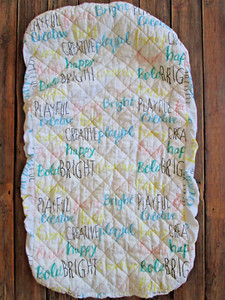 PLAYFUL Bright
Creative
CREATIVE playful
happy hap
Bold BRIGHT Bold BRIG
Bright
PLAYFUL PLAYFUL
Creative Creative
CREATIVE playful CREA
happy hap
Bold BRIGHT Bold BRIG
Bright
PLAYFUL PLAYFUL
Creative Creative
CREATIVE playful CREA
happy hap
Bold BRIGHT Bold BRIG